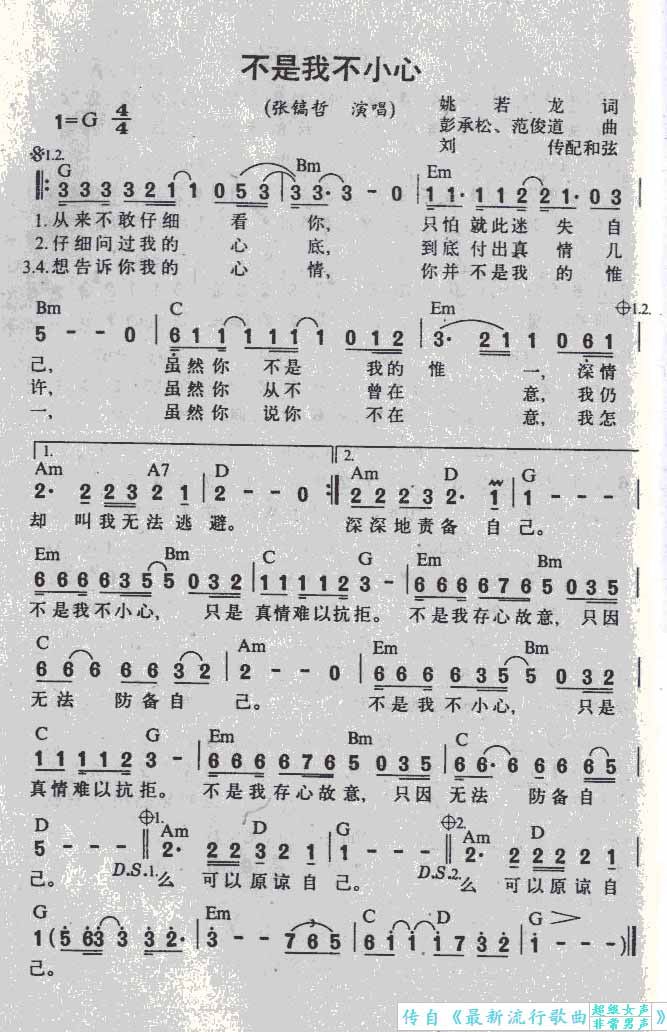 不是我不小心
(张镐哲 演唱)
姚若龙 词
彭承松、范俊道 曲
刘 传配和弦
1=G 4/4
𝄋1.2.
G Bm Em
3 3 3 3 2 1 1 0 5 3 3 3· 3 - 0 1 1· 1 1 2 2 1· 0 3
1.从来不敢仔细 看 你, 只怕就此迷失自
2.仔细问过我的 心 底, 到底付出真情几
3.4.想告诉你我的 心 情, 你并不是我的惟
Bm C Em 𝄌1.2.
5 - - 0 6 1 1 1 1 1 1 0 1 2 3· 2 1 1 0 6 1
己, 虽然你 不是 我的 惟 一, 深情
许, 虽然你 从不 曾在 意, 我仍
一, 虽然你 说你 不在 意, 我怎
1. 2.
Am A7 D Am D G
2· 2 2 3 2 1 2 - - 0 2 2 2 3 2· 1 1 - - -
却 叫我无法逃避。 深深地责备 自己。
Em Bm C G Em Bm
6 6 6 6 6 3 5 5 0 3 2 1 1 1 1 2 3 - 6 6 6 6 6 7 6 5 0 3 5
不是我不小心, 只是 真情难以抗拒。 不是我存心故意, 只因
C Am Em Bm
6 6 6 6 6 3 2 2 - - 0 6 6 6 6 3 5 5 0 3 2
无法 防备自 己。 不是我不小心, 只是
C G Em Bm C
1 1 1 1 2 3 - 6 6 6 6 7 6 5 0 3 5 6 6· 6 6 6 6 5
真情难以抗拒。 不是我存心故意, 只因 无法 防备自
D 𝄌1. Am D G 𝄌2. Am D
5 - - - 2· 2 2 3 2 1 1 - - - 2· 2 2 2 2 1
己。 D.S.1. 么 可以原谅自己。 D.S.2. 么 可以原谅自
G Em C D G
1 (5 6 3 3 3 3 2· 3 - - 7 6 5 6 1 1 1 7 3 2 1 - - -)
己。
传自《最新流行歌曲
超级女声
非常男声
》